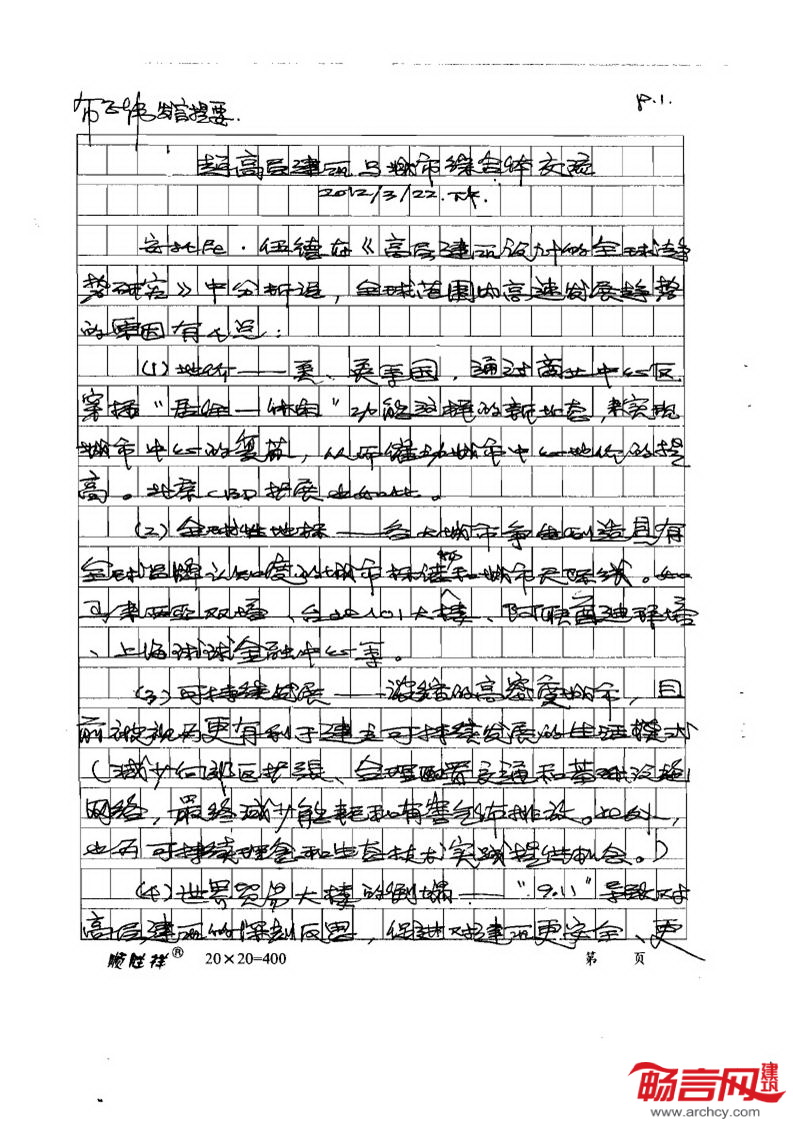 布正伟发言提要. P.1.
超高层建筑与城市综合体交流
2012/3/22.下午.
安托尼·伍德在《高层建筑设计的全球趋
势研究》中分析说，全球范围的高速发展趋势
的原因有七点：
(1)地价——美、英等国，通过商业中心区
穿插“居住—休闲”功能选择的新业态，来实现
城市中心的复苏，从而催动城市中心地价的提
高。北京CBD扩展也如此。
(2)全球性地标——各大城市争先创造具有
全球品牌认知度的城市标志和城市天际线。如
马来西亚双塔、台北101大楼、阿联酋迪拜塔
、上海环球金融中心等。
(3)可持续发展——浓缩的高密度城市，目
前被视为更有利于建立可持续发展的生活模式
(减少向郊区扩张、合理配置交通和基础设施
网络，最终减少能耗和有害气体排放。此外，
也为可持续理念和生态技术实践提供机会。)
(4)世界贸易大楼的倒塌——“9.11”导致对
高层建筑的深刻反思，促进对建筑更安全、更
顺胜祥® 20×20=400 第 页
畅言网 建筑
www.archcy.com